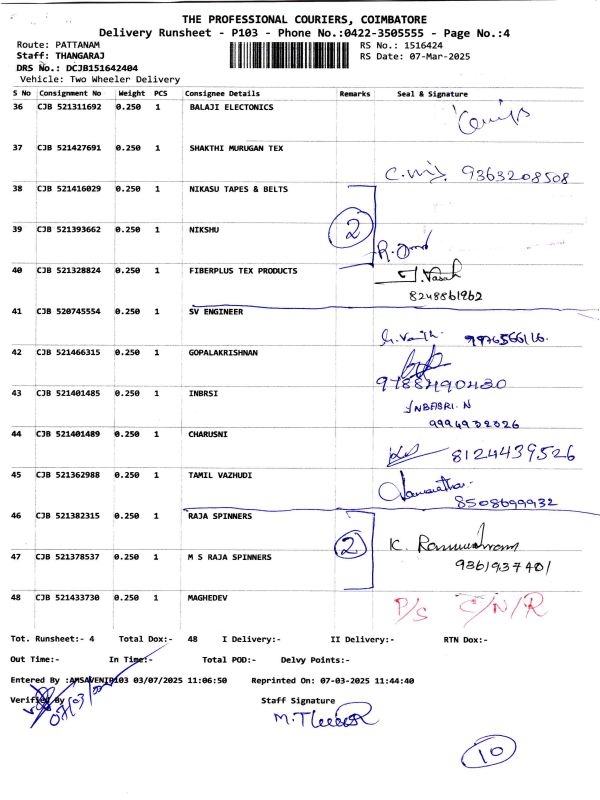 THE PROFESSIONAL COURIERS, COIMBATORE
Delivery Runsheet - P103 - Phone No.:0422-3505555 - Page No.:4
Route: PATTANAM RS No.: 1516424
Staff: THANGARAJ RS Date: 07-Mar-2025
DRS No.: DCJB151642404
Vehicle: Two Wheeler Delivery
S No Consignment No Weight PCS Consignee Details Remarks Seal & Signature
36 CJB 521311692 0.250 1 BALAJI ELECTONICS
37 CJB 521427691 0.250 1 SHAKTHI MURUGAN TEX
9363208508
38 CJB 521416029 0.250 1 NIKASU TAPES & BELTS
2
39 CJB 521393662 0.250 1 NIKSHU
40 CJB 521328824 0.250 1 FIBERPLUS TEX PRODUCTS
8248861962
41 CJB 520745554 0.250 1 SV ENGINEER
9976566116.
42 CJB 521466315 0.250 1 GOPALAKRISHNAN
9788490430
43 CJB 521401485 0.250 1 INBRSI
INBASRI. N
9994932026
44 CJB 521401489 0.250 1 CHARUSNI
8124439526
45 CJB 521362988 0.250 1 TAMIL VAZHUDI
8508699932
46 CJB 521382315 0.250 1 RAJA SPINNERS
2 K.
47 CJB 521378537 0.250 1 M S RAJA SPINNERS
9361937401
48 CJB 521433730 0.250 1 MAGHEDEV P/S C/N/R
Tot. Runsheet:- 4 Total Dox:- 48 I Delivery:- II Delivery:- RTN Dox:-
Out Time:- In Time:- Total POD:- Delvy Points:-
Entered By :AMSAVENIP103 03/07/2025 11:06:50 Reprinted On: 07-03-2025 11:44:40
Verified By Staff Signature
10